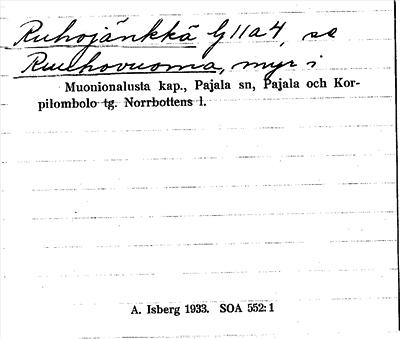 Ruhojänkkä G11a4, se
Ruuhovuoma, myr i
Muonionalusta kap., Pajala sn, Pajala och Kor-
pilombolo tg. Norrbottens l.
A. Isberg 1933. SOA 552: 1